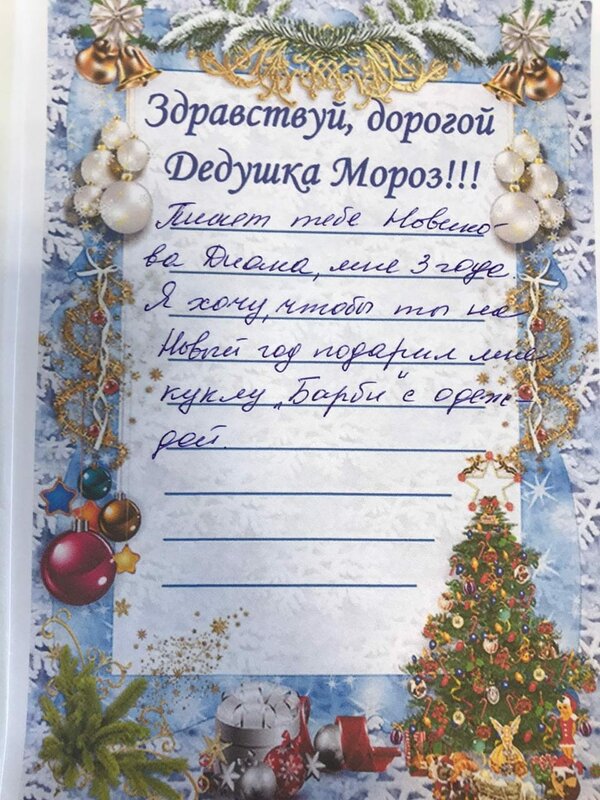 Здравствуй, дорогой
Дедушка Мороз!!!
Пишет тебе Новико-
ва Диана, мне 3 года
Я хочу, чтобы ты на
Новый год подарил мне
куклу „Барби" с одеж
дой.